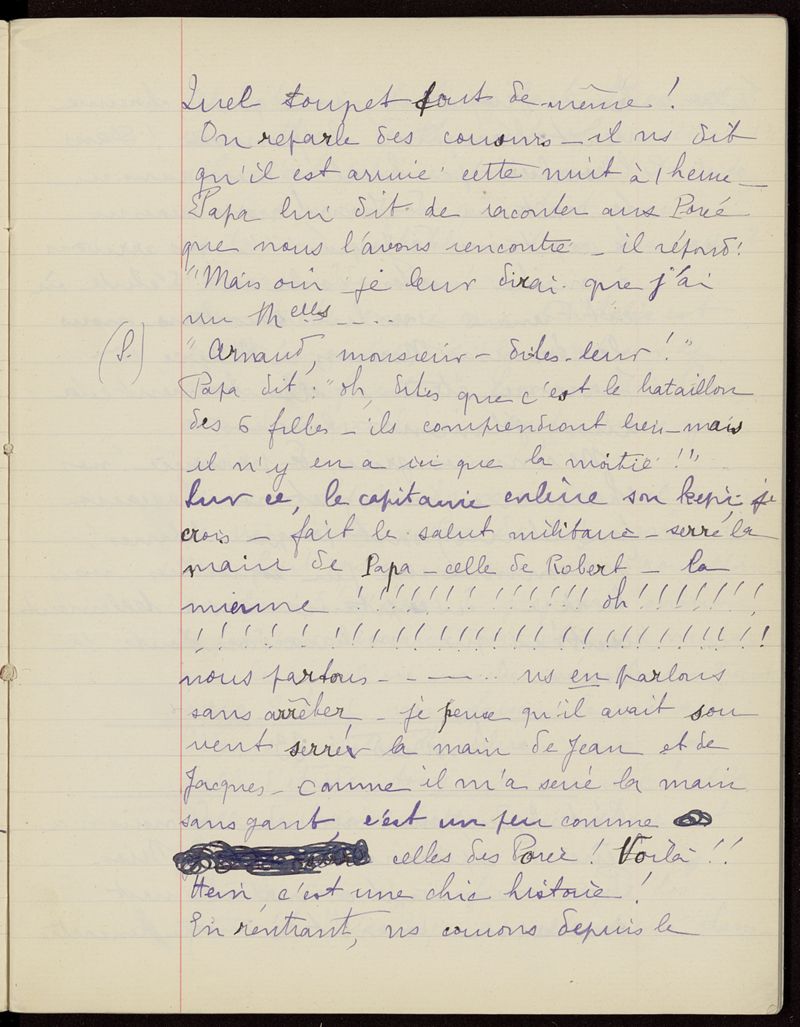 Quel toupet tout de même !
On reparle des cousins – il ns dit
qu'il est arrivé cette nuit à 1 heure –
Papa lui dit de raconter aux Porée
que nous l'avons rencontré – il répond :
"Mais oui je leur dirai que j'ai
vu Melles - - . .
(S.) "Arnaud, monsieur – dites-leur !"
Papa dit : "oh, dites que c'est le bataillon
des 6 filles – ils comprendront bien – mais
il n'y en a ici que la moitié !!"
Sur ce, le capitaine enlève son kepi – je
crois – fait le salut militaire – serre la
main de Papa – celle de Robert – la
mienne !!!!!!! !!!!!! oh !!!!!!!
!!!!!!!!!!!!!!!!!!!!!!!!!!!
nous partons - - —– . . ns en parlons
sans arrêter – je pense qu'il avait sou
vent serrér la main de Jean et de
Jacques – comme il m'a serré la main
sans gant, c'est un peu comme
celles des Porée ! Voilà !!
Hein, c'est une chic histoire !
En rentrant, ns courons depuis le